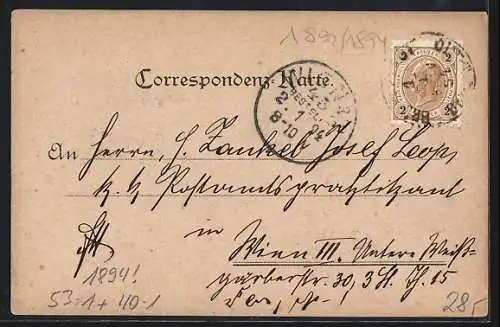 1892/1894
Correspondenz-Karte.
WIEN 3/2
BESTELLT
2. 1 94
8-10
An Herrn, H. Zankel Josef Leop,
k. k. Postamtspraktikant
in
Wien III. Untere Weiß-
gärberstr. 30, 3 St. Th. 15
1894!
53=1+40-1
28,-